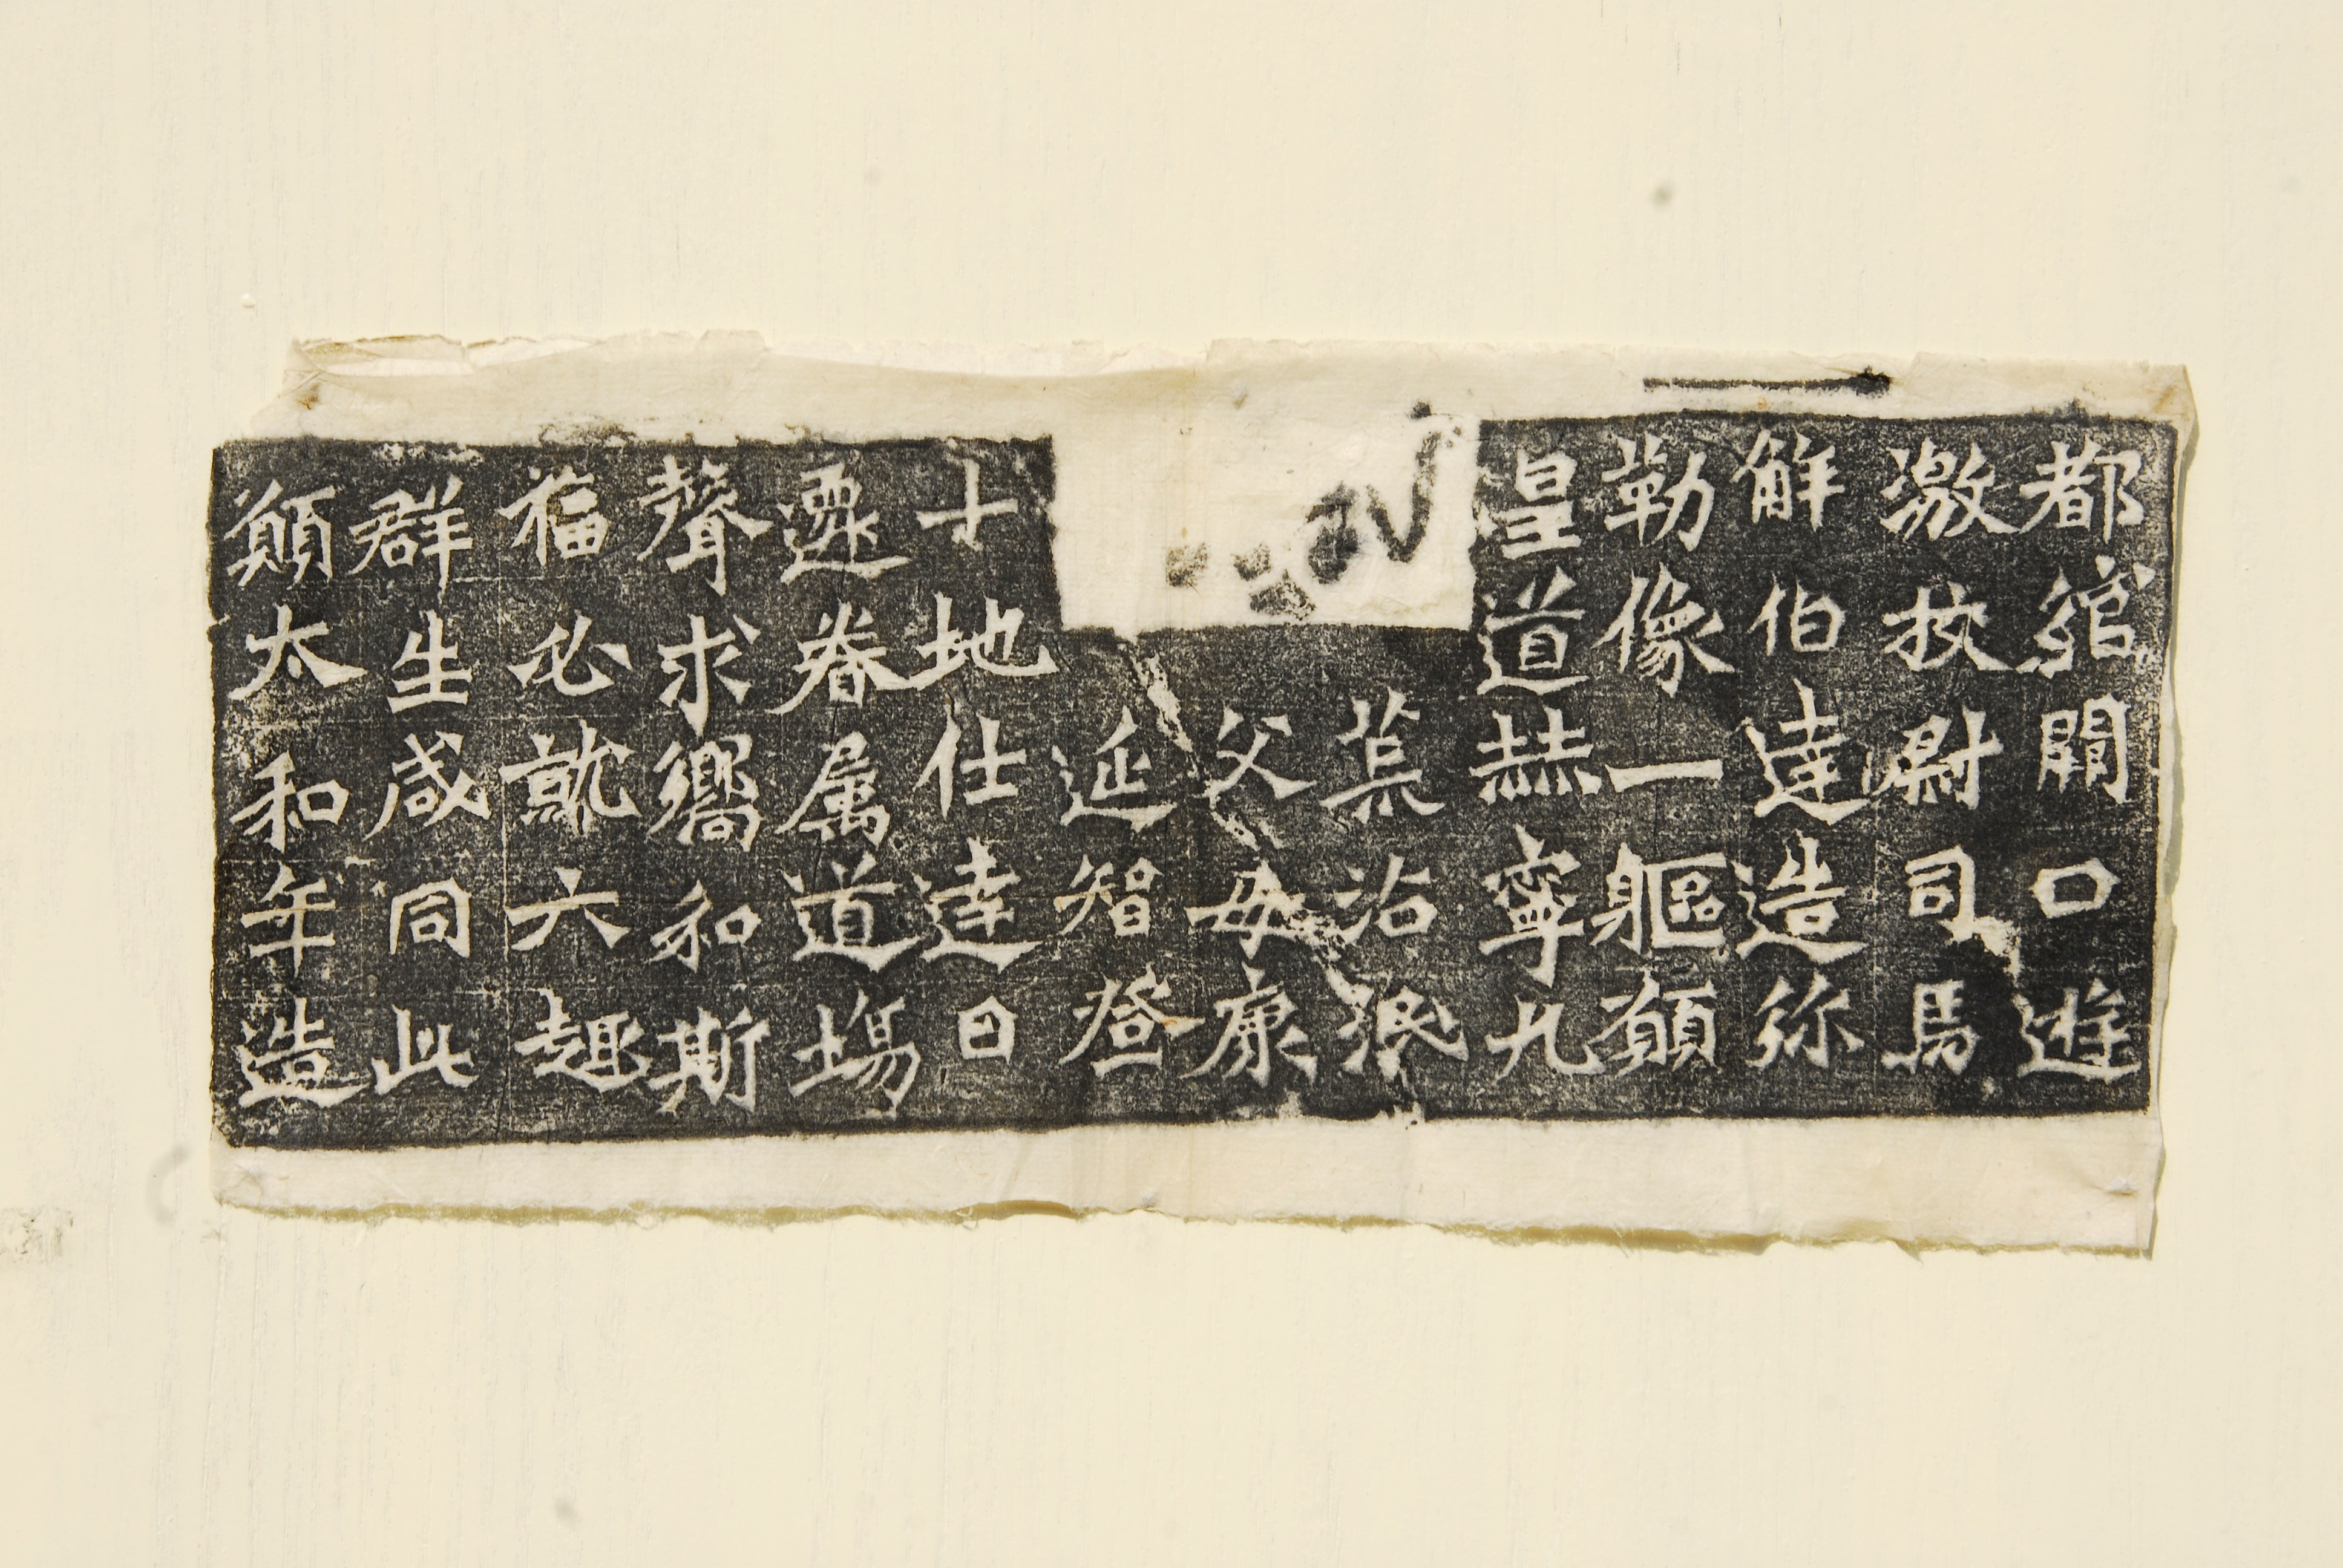 都綰闕口遊
激校尉司馬
解伯達造弥
勒像一軀願
皇道赫寧九
荒沾泯
父母康
延智登
十地仕達日
遷眷属道場
聲求響和斯
福必就六趣
群生咸同此
願太和年造